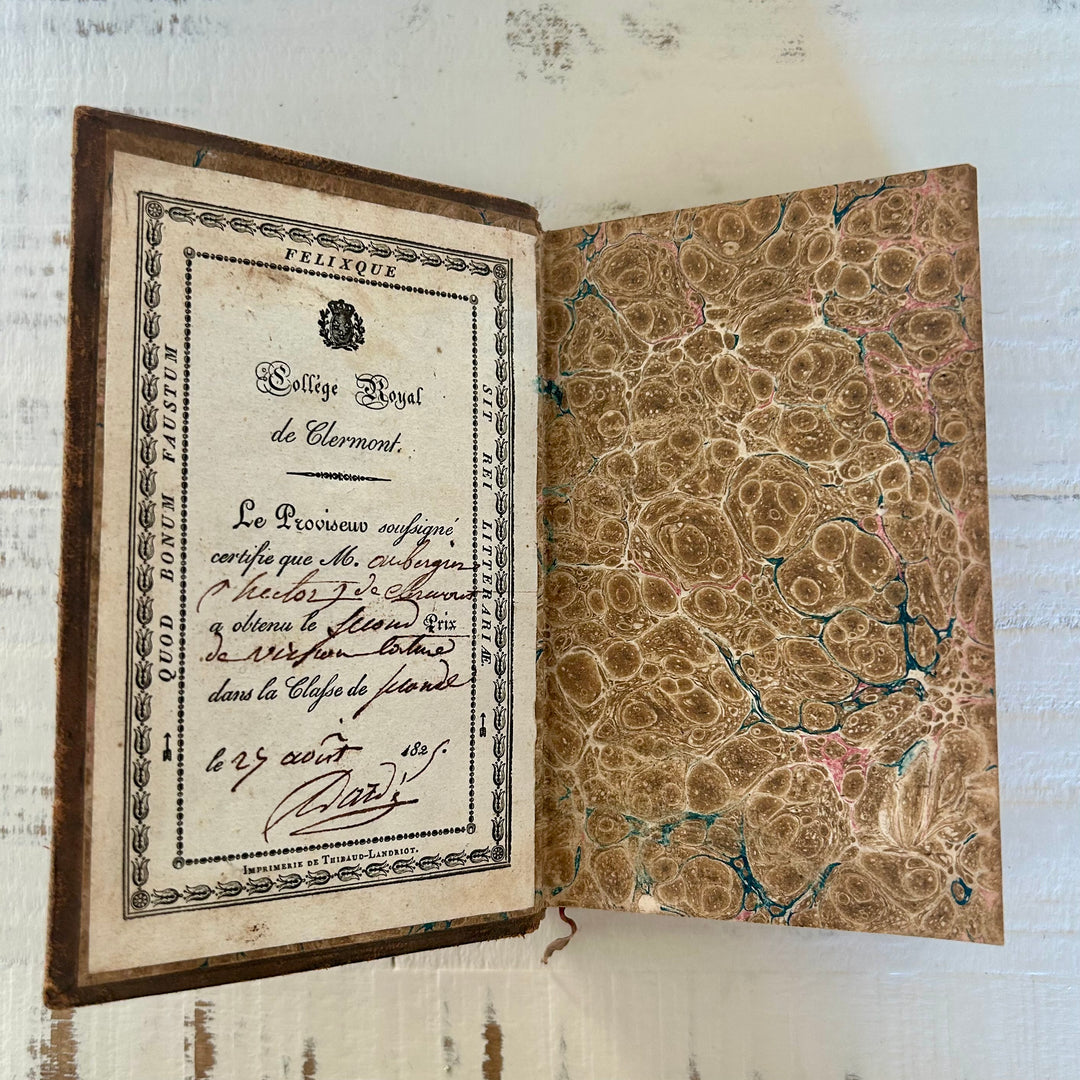 FELIXQUE
QUOD BONUM FAUSTUM
SIT REI LITTERARIÆ.
Collége Royal
de Clermont.
Le Proviseur soussigné
certifie que M. aubergier
hector j de clermont
a obtenu le second Prix
de version latine
dans la Classe de seconde
le 27 août 1825.
IMPRIMERIE DE THIBAUD-LANDRIOT.